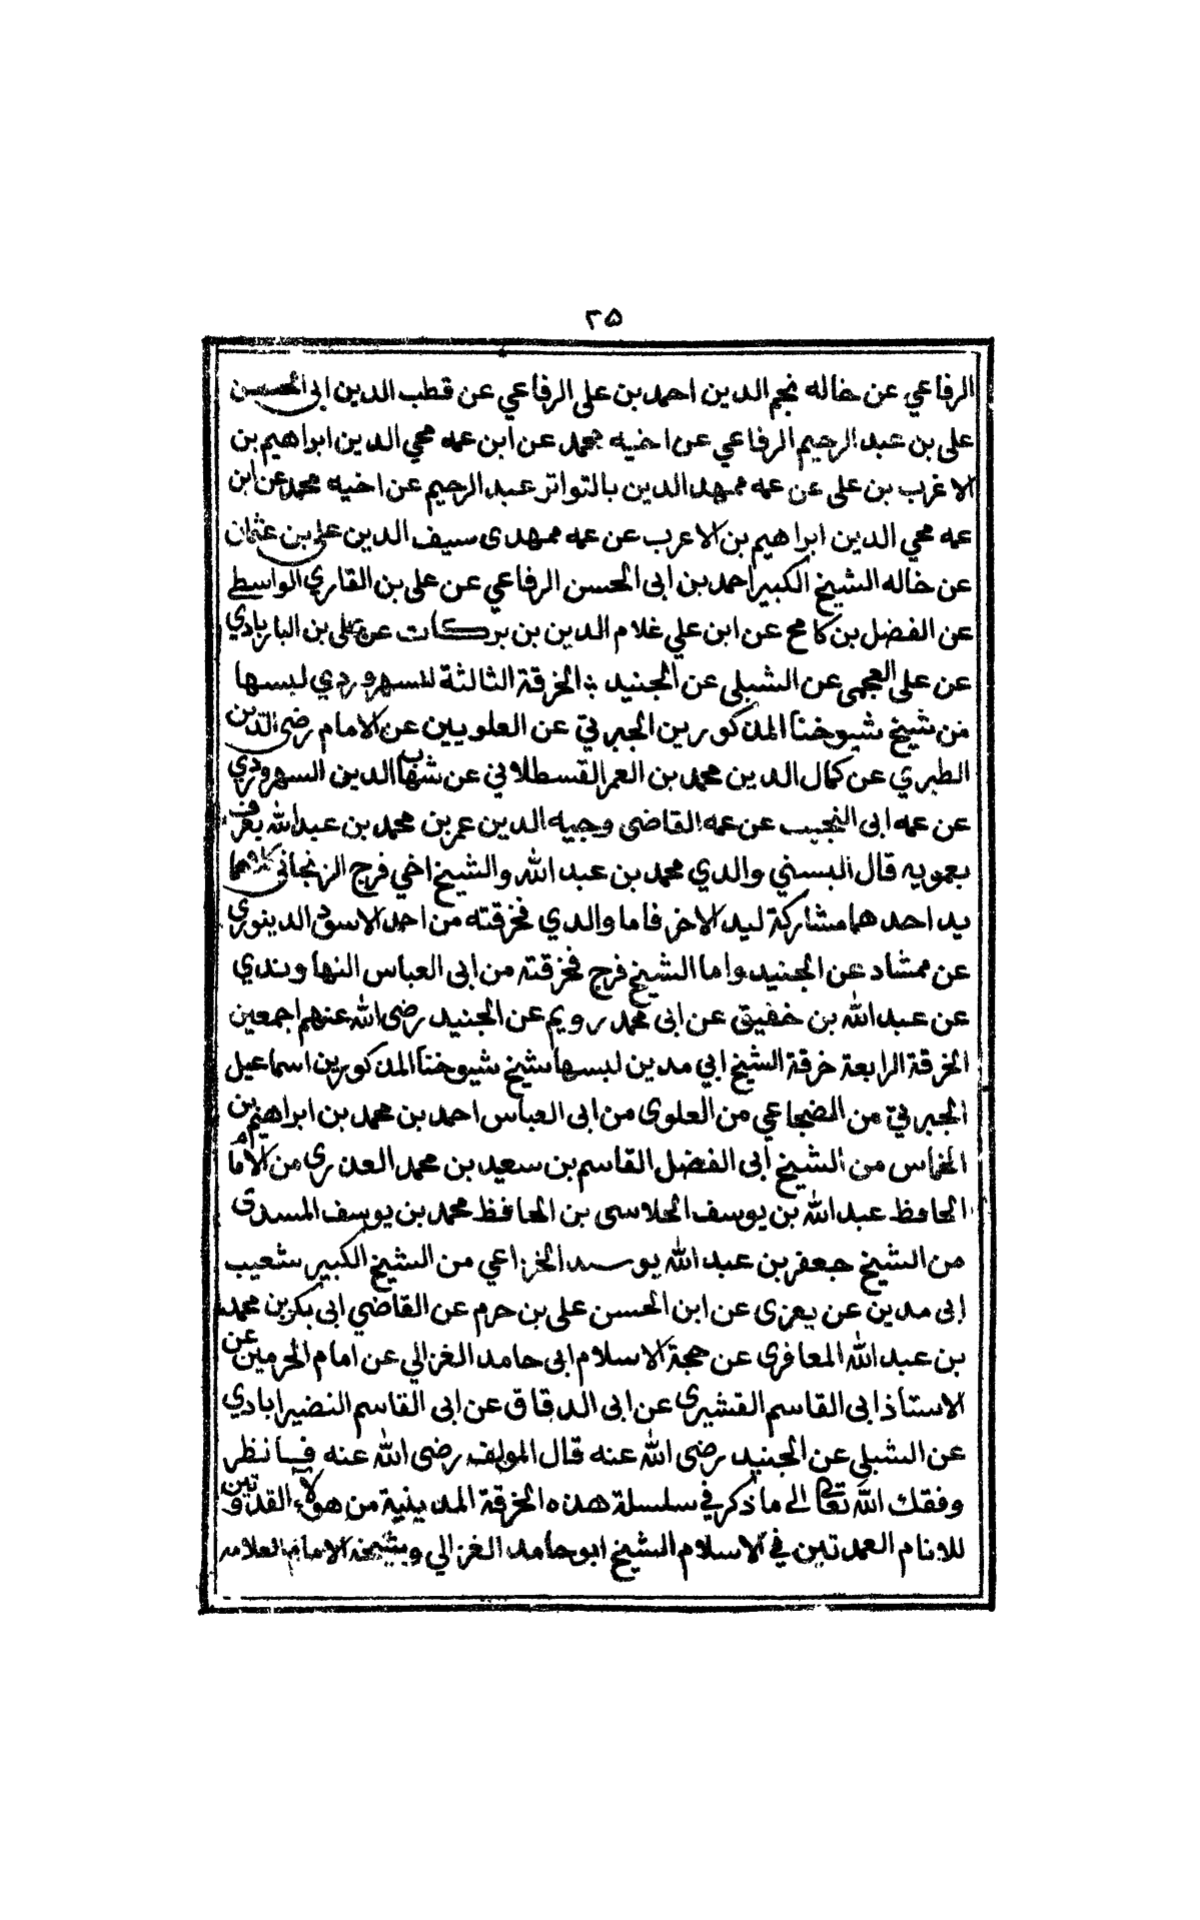 ٢٥
الرفاعي عن خاله نجم الدين احمد بن على الرفاعي عن قطب الدين ابى الحسن
على بن عبد الرحيم الرفاعي عن اخيه محمد عن ابن عمه محي الدين ابراهيم بن
الاغرب بن على عن عمه ممهد الدين بالتواتر عبد الرحيم عن اخيه محمد عن ابن
عمه محي الدين ابراهيم بن الاعرب عن عمه ممهدى سيف الدين على بن عثمان
عن خاله الشيخ الكبير احمد بن ابى الحسن الرفاعي عن على بن القاري الواسطي
عن الفضل بن كامح عن ابن علي غلام الدين بن بركات عن على بن البارباذي
عن على العجمى عن الشبلى عن الجنيد ؛ الخرقة الثالثة للسهروردي لبسها
من شيخ شيوخنا المذكورين الجبرتي عن العلويين عن الامام رضى الدين
الطبري عن كمال الدين محمد بن العمر القسطلاني عن شهاب الدين السهروردي
عن عمه ابى النجيب عن عمه القاضى وجيه الدين عمر بن محمد بن عبد الله يعرف
بعمويه قال البسني والدي محمد بن عبد الله والشيخ اخي فرج الزنجانى كلاهما
يد احدهما مشاركة ليد الاخر فاما والدي فخرقته من احمد الاسود الدينوري
عن ممشاد عن الجنيد واما الشيخ فرج فخرقته من ابى العباس النهاوندي
عن عبد الله بن خفيق عن ابى محمد رويم عن الجنيد رضى الله عنهم اجمعين
الخرقة الرابعة خرقة الشيخ ابي مدين لبسها شيخ شيوخنا المذكورين اسماعيل
الجبرتي من الضجاعي من العلوى من ابى العباس احمد بن محمد بن ابراهيم بن
من الشيخ ابى الفضل القاسم بن سعيد بن محمد العذري من الامام
الحافظ عبد الله بن يوسف الخلاسى بن الحافظ محمد بن يوسف المسدى
من الشيخ جعفر بن عبد الله الخزاعي من الشيخ الكبير شعيب
ابى مدين عن يعزى عن ابن الحسن على بن حرم عن القاضي ابى بكر بن محمد
بن عبد الله المعافرى عن حجة الاسلام ابى حامد الغزالي عن امام الحرمين عن
الاستاذ ابى القاسم القشيرى عن ابى الدقاق عن ابى القاسم النضيرابادي
عن الشبلي عن الجنيد رضى الله عنه قال المولف رضى الله عنه فانظر
وفقك الله تعالى الى ما ذكر في سلسلة هذه الخرقة المدينية من هولاء القدوتين
للانام العمدتين في الاسلام الشيخ ابو حامد الغزالي وشيخه الامام العلامه